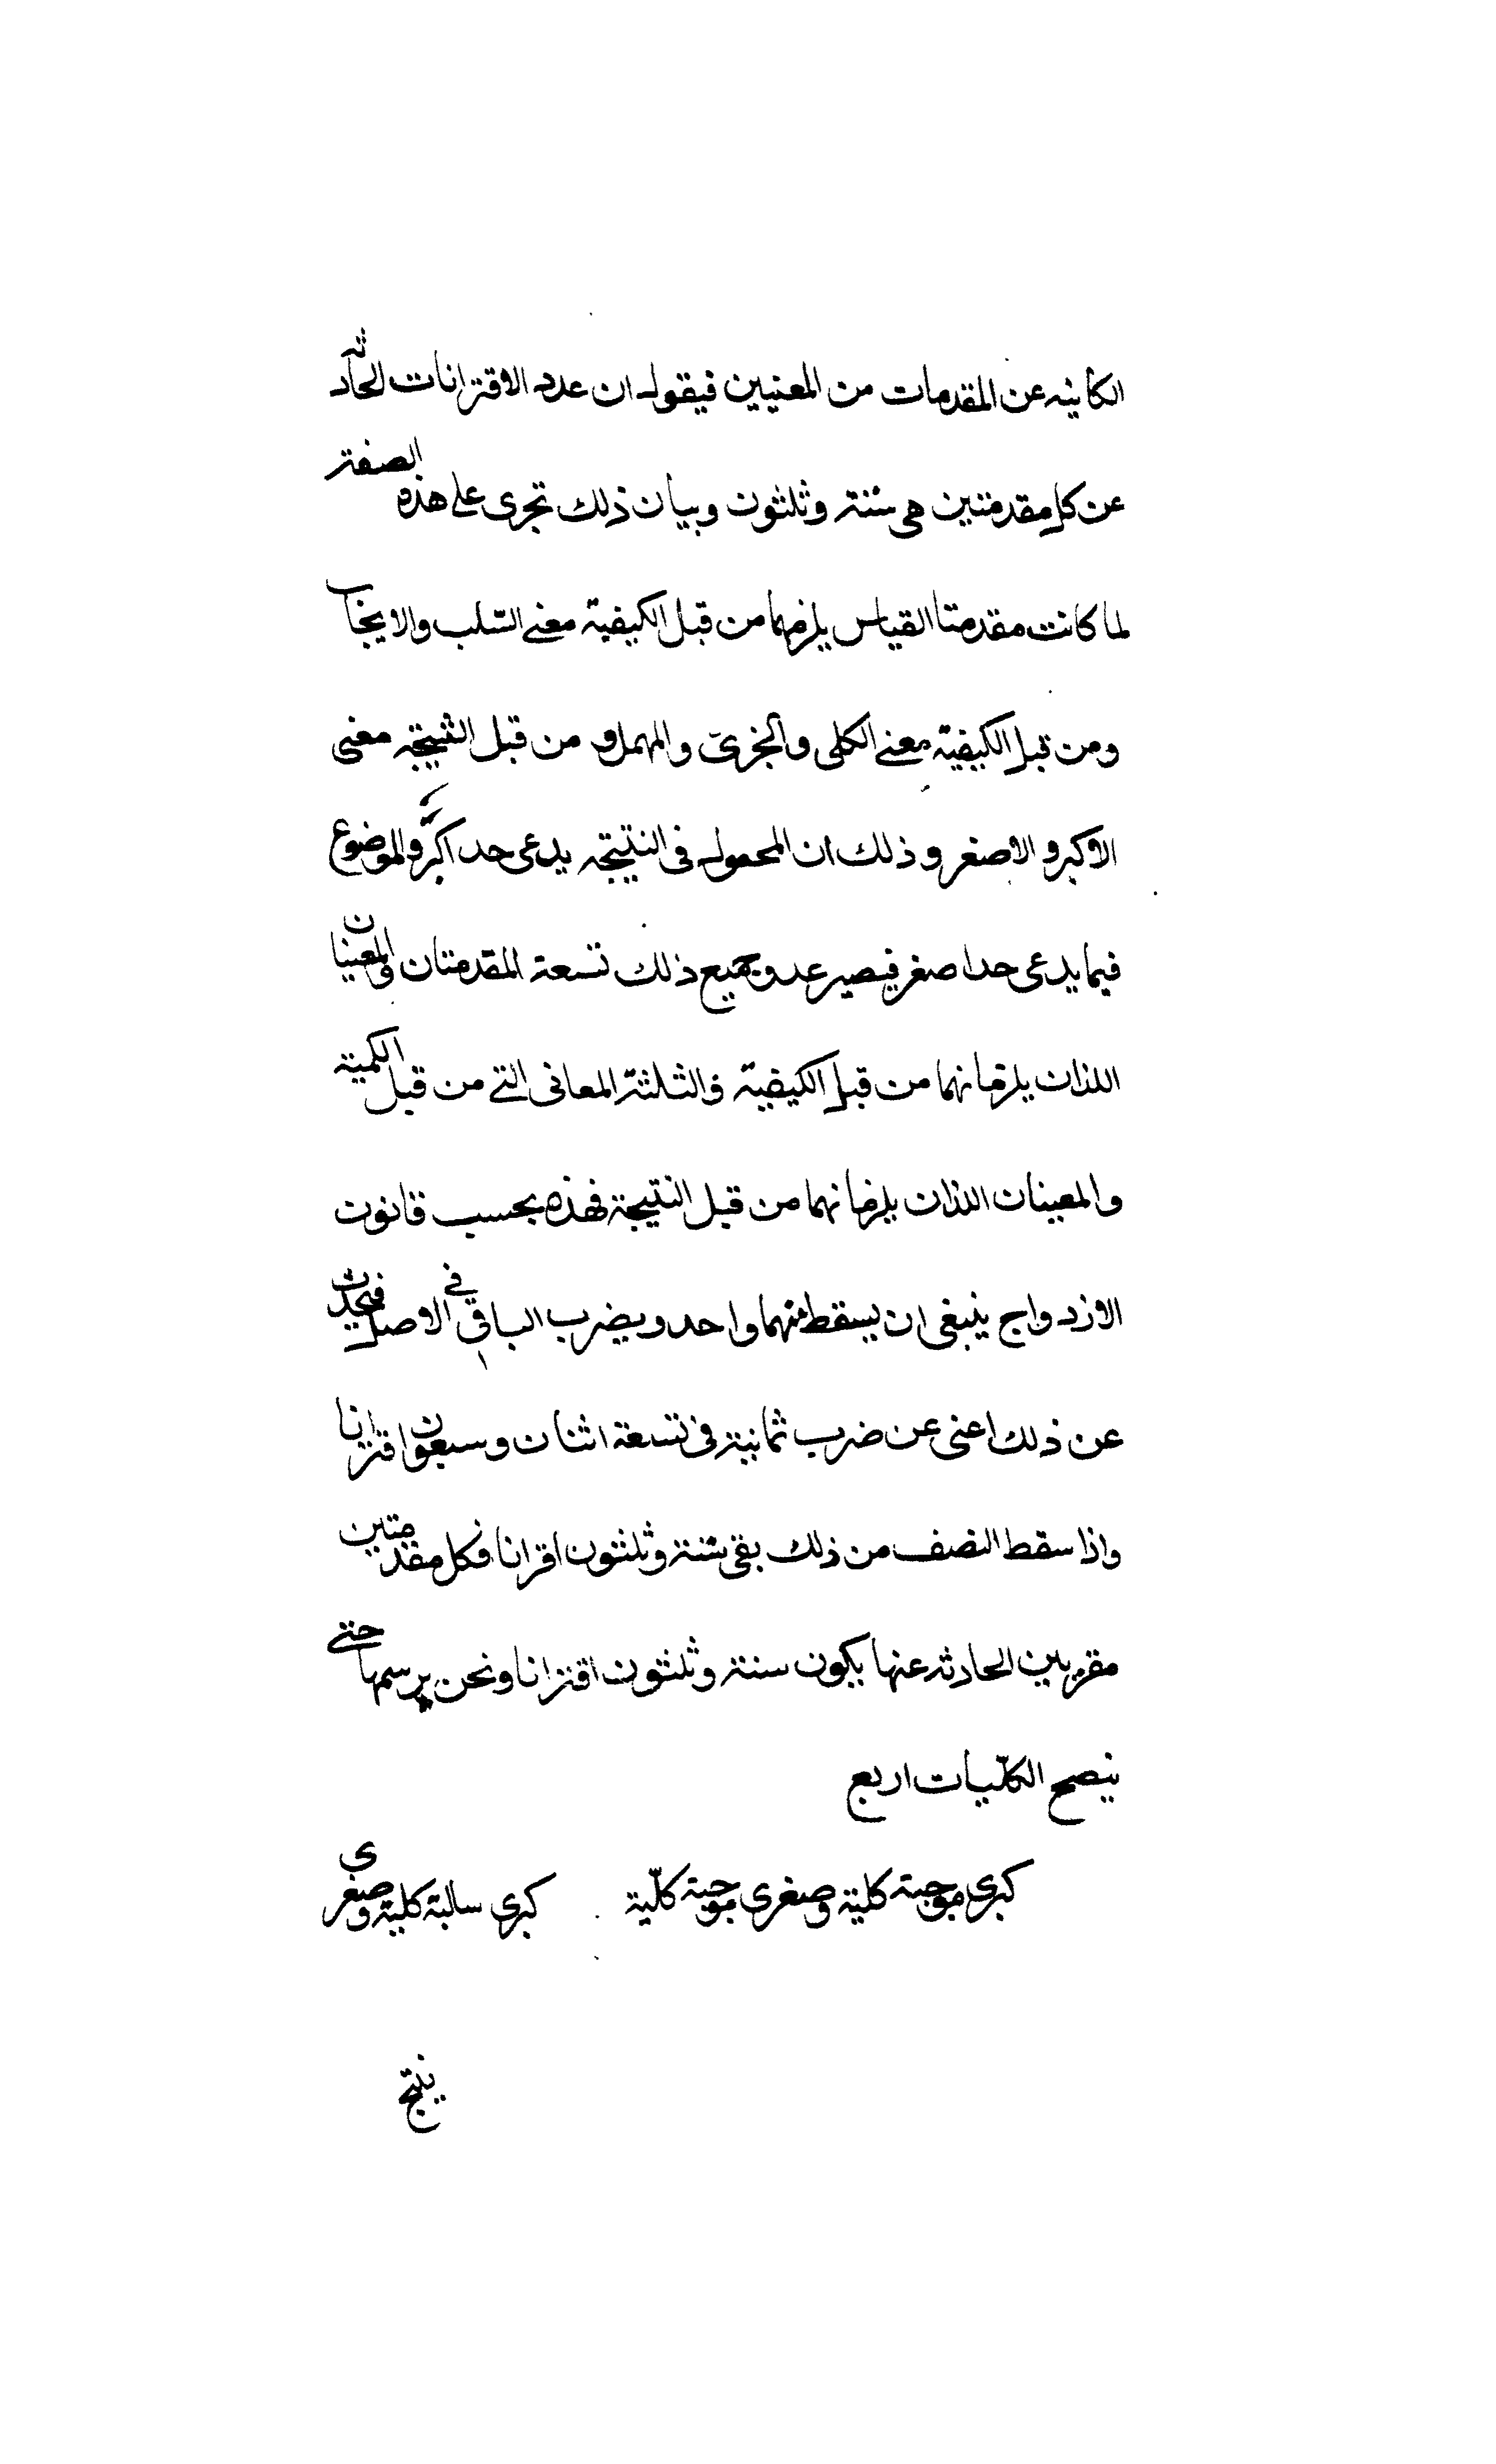 الكاينه عن المقدمات من المعنيين فيقول ان عدد الاقترانات الحادثه
عن كل مقدمتين هى ستة وثلثون وبيان ذلك تجرى على هذه الصفة
لما كانت مقدمتا القياس يلزمهما من قبل الكيفية معنى السّلب والايجاب
ومن قبل الكيفية معنى الكلى والجزئ والمهمل و من قبل النتيجة معنى
الاكبر و الاصغر و ذلك ان المحمول فى النتيجه يدعى حد اكبر والموضوع
فيما يدعى حدا صغر فيصير عدد جميع ذلك تسعة المقدمتان والمعنيان
اللذان يلزمانهما من قبل الكيفية والثلثة المعانى التى من قبل الكمية
والمعينان اللذان يلزمانهما من قبل النتيجة فهذه بحسب قانون
الازدواج ينبغى ان يسقط منهما واحد ويضرب الباقى فى الاصل فيحدث
عن ذلك اعنى عن ضرب ثمانية فى تسعة اثنان وسبعون اقترانا
واذا سقط النصف من ذلك بقى ستة وثلثون اقرانا فكل مقدمتين
الحادثه عنها يكون ستة وثلثون اقترانا ونحن نرسمها حتى
يتضح الكلّيات اربع
كبرى موجبة كلية وصغرى موجبة كلّية كبرى سالبة كلية وصغرى
ينتج